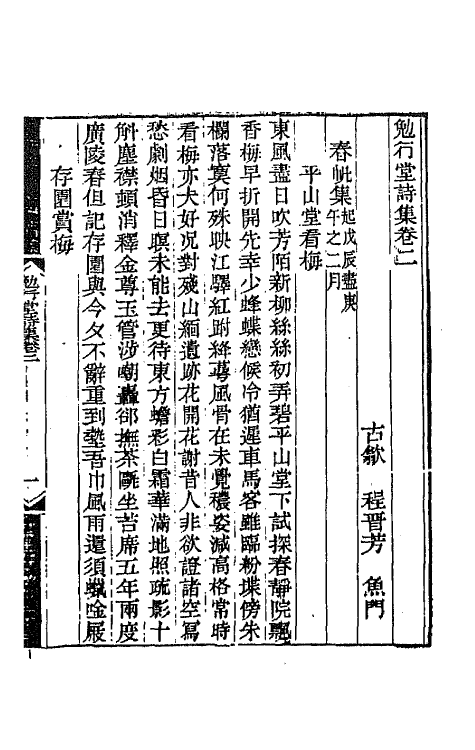 勉行堂詩集卷二
古歙　程晋芳　魚門
春帆集起戊辰盡庚午之二月
平山堂看梅
東風盡日吹芳陌新柳絲絲初弄碧平山堂下試探春靜院飄
香梅早折開先幸少蜂蝶戀候冷猶遲車馬客雖臨粉堞傍朱
欄落寞何殊映江驛紅跗絳萼風骨在未覺穠姿減高格常時
看梅亦大好況對殘山緬遺跡花開花謝昔人非欲證諸空寫
愁劇烟昏日暝未能去更待東方蟾彩白霜華滿地照疏影十
斛塵襟頓消釋金尊玉管涉嘲轟卻撫茶甌坐苔席五年兩度
廣陵春但記存園與今夕不辭重到墊吾巾風雨還須蠟唫屐
存園賞梅
勉行堂詩集卷二
一